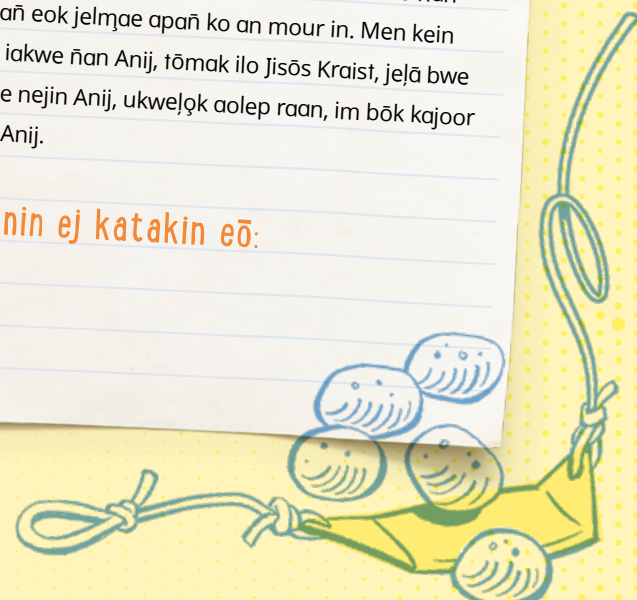 apan̄ eok jelm̧ae apan̄ ko an mour in. Men kein
iakwe n̄an Anij, tōmak ilo Jisōs Kraist, jeļā bwe
nejin Anij, ukweļo̧k aolep raan, im bōk kajoor
Anij.
nin ej katakin eō: